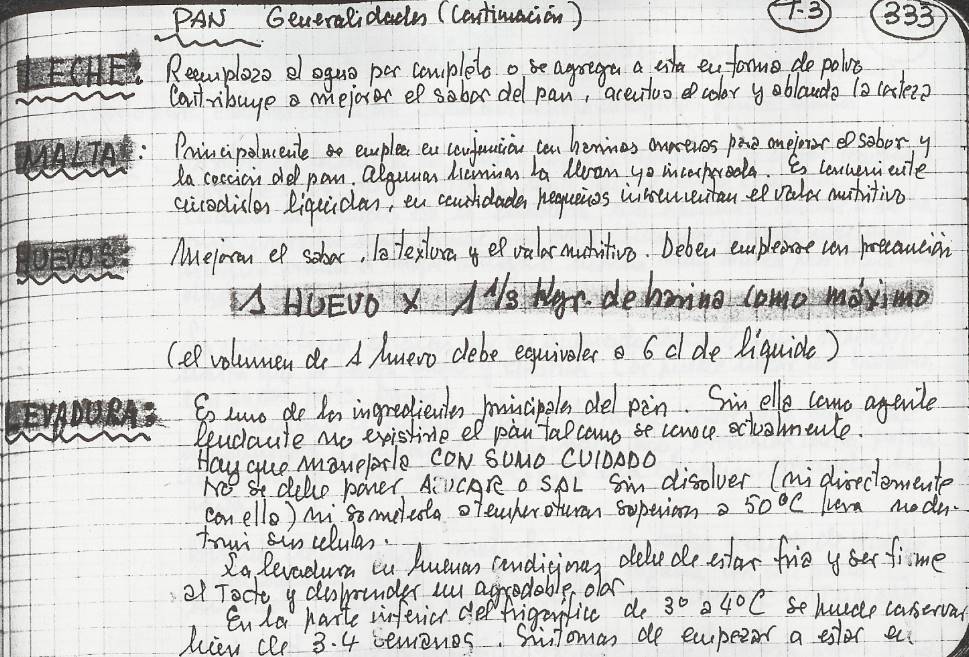 PAN Generalidades (Continuación) T-3 333
LECHE: Reemplaza el agua por completo o se agrega a esta en forma de polvo
Contribuye a mejorar el sabor del pan, acentua el color y ablanda la corteza
MALTA: Principalmente se emplea en conjunción con harinas morenas para mejorar el sabor y
la cocción del pan. Algunas harinas la llevan ya incorporada. Es conveniente
líquidas, en cantidades pequeñas incrementan el valor nutritivo
HUEVOS: Mejoran el sabor, la textura y el valor nutritivo. Deben emplearse con precaución
1 HUEVO x 1 1/3 Kgr. de harina como máximo
(el volumen de 1 huevo debe equivaler a 6 cl de líquido)
LEVADURA: Es uno de los ingredientes principales del pan. Sin ella como agente
leudante no existiria el pan tal como se conoce actualmente.
Hay que manejarla CON SUMO CUIDADO
No se debe poner AZUCAR o SAL sin disolver (ni directamente
con ella) ni someterla a temperaturas superiores a 50°C para no des-
truir sus celulas.
La levadura en buenas condiciones debe de estar fria y ser firme
al Tacto y desprender un agradable olor
En la parte inferior del frigorifico de 3° a 4°C se puede conservar
bien de 3-4 semanas. Sintomas de empezar a estar en